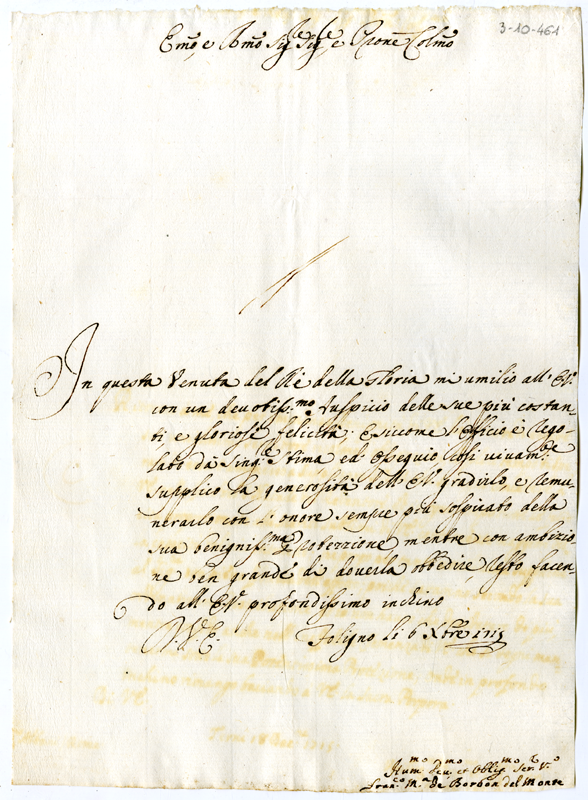 3-10-461
Em̃o, e Rm̃o Sig.re Sig.re e Prone Colm̃o
In questa Venuta del Rè della Gloria mi umilio all' E.V.
con un devotiss:mo Auspicio delle sue più costan-
ti e gloriose felicità; E siccome l'Officio è Rego-
lato da Sing.e Stima ed Ossequio così vivam.te
supplico la generosità dell' E.V. gradirlo, e remu-
nerarlo con l'onore sempre più sospirato della
sua benigniss:ma Protezzione, mentre con ambizio
ne ben grande di doverla obbedire, resto facen-
do all' E.V. profondissimo inchino
Di V. E.
Foligno li 6 Xbre 1715
Hum.mo dev.mo et Obblig.mo Ser.re V.o
Fran.co M.a de Borbon del Monte